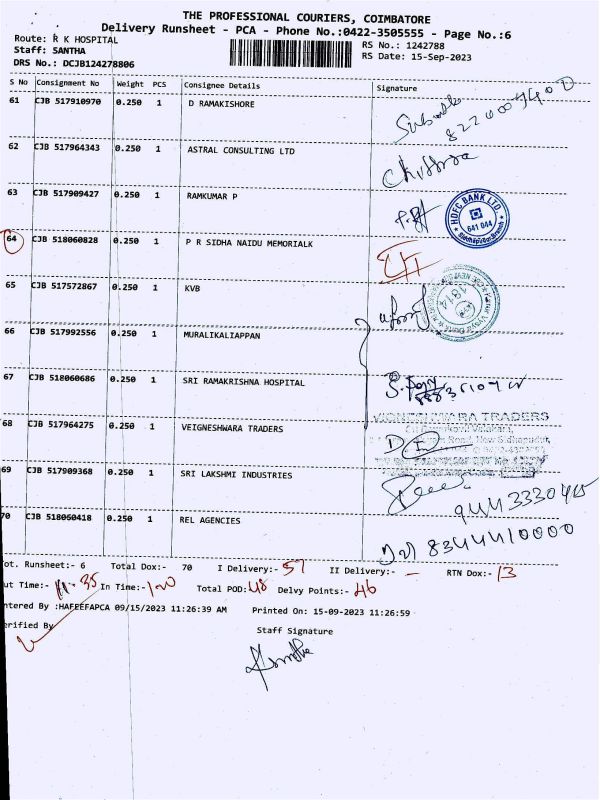 THE PROFESSIONAL COURIERS, COIMBATORE
Delivery Runsheet - PCA - Phone No.:0422-3505555 - Page No.:6
Route: R K HOSPITAL RS No.: 1242788
Staff: SANTHA RS Date: 15-Sep-2023
DRS No.: DCJB124278806
S No Consignment No Weight PCS Consignee Details Signature
61 CJB 517910970 0.250 1 D RAMAKISHORE
62 CJB 517964343 0.250 1 ASTRAL CONSULTING LTD
63 CJB 517909427 0.250 1 RAMKUMAR P
HDFC BANK LTD.
641 044
64 CJB 518060828 0.250 1 P R SIDHA NAIDU MEMORIALK
65 CJB 517572867 0.250 1 KVB
1814
66 CJB 517992556 0.250 1 MURALIKALIAPPAN
67 CJB 518060686 0.250 1 SRI RAMAKRISHNA HOSPITAL
68 CJB 517964275 0.250 1 VEIGNESHWARA TRADERS
VIGNESHWARA TRADERS
69 CJB 517909368 0.250 1 SRI LAKSHMI INDUSTRIES
70 CJB 518060418 0.250 1 REL AGENCIES 8344410000
Tot. Runsheet:- 6 Total Dox:- 70 I Delivery:- 57 II Delivery:- - RTN Dox:- 13
Out Time:- 11.35 In Time:- 1.00 Total POD: 48 Delvy Points:- 46
Entered By :HAFEEFAPCA 09/15/2023 11:26:39 AM Printed On: 15-09-2023 11:26:59
Verified By
Staff Signature